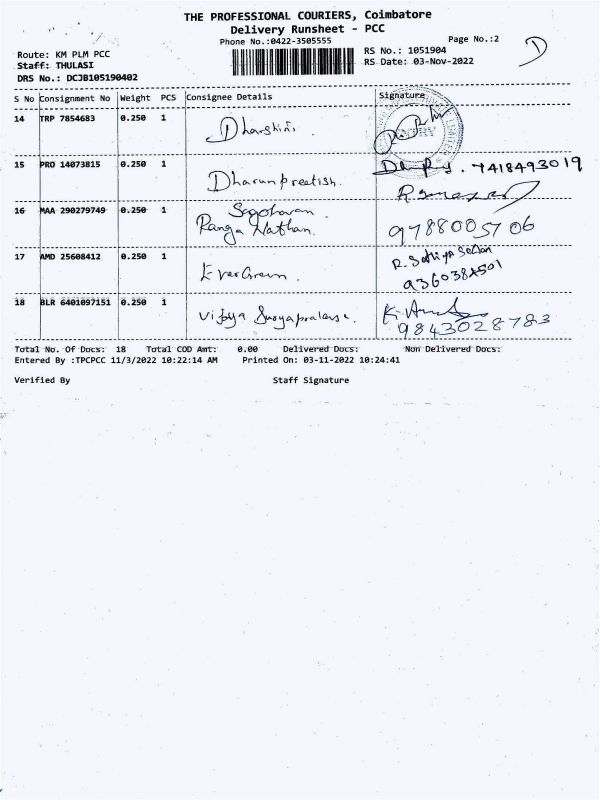 THE PROFESSIONAL COURIERS, Coimbatore
Delivery Runsheet - PCC
Phone No.:0422-3505555
Page No.:2
Route: KM PLM PCC
RS No.: 1051904
Staff: THULASI
RS Date: 03-Nov-2022
DRS No.: DCJB105190402
S No Consignment No Weight PCS Consignee Details Signature
14 TRP 7854683 0.250 1 Dharshini.
15 PRO 14073815 0.250 1 Dharunpreetish. 7418493019
16 MAA 290279749 0.250 1
Ranga Nathan. 9788005706
17 AMD 25608412 0.250 1 EverGreen.
18 BLR 6401097151 0.250 1 Vijaya Suryaprakash.
9843028783
Total No. Of Docs: 18 Total COD Amt: 0.00 Delivered Docs: Non Delivered Docs:
Entered By :TPCPCC 11/3/2022 10:22:14 AM Printed On: 03-11-2022 10:24:41
Verified By Staff Signature